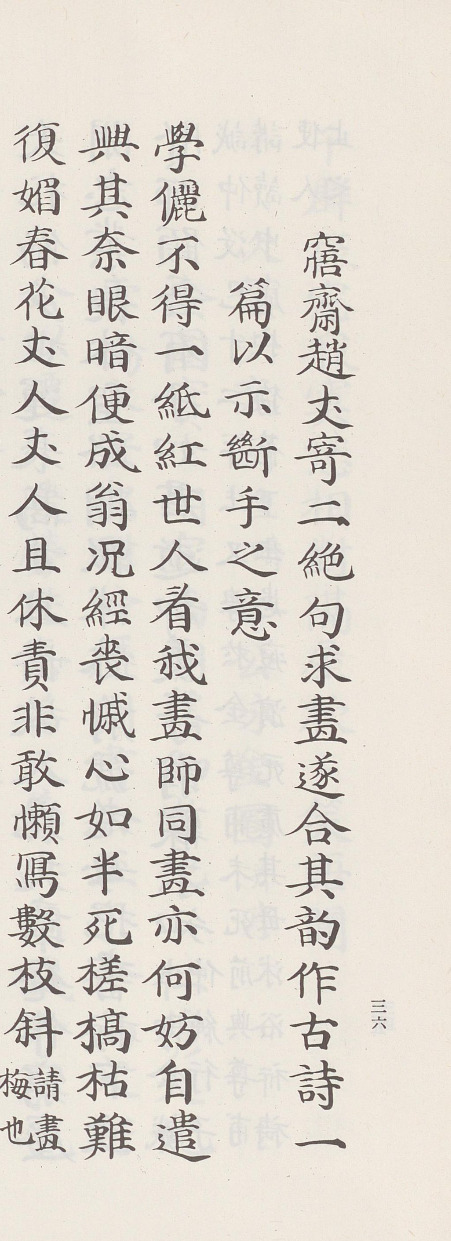 三六
寤齋趙𠀋寄二絶句求畫遂合其韵作古詩一
篇以示斷手之意
學儷不得一紙紅世人看我畫師同畫亦何妨自遣
興其奈眼暗便成翁况經喪慽心如半死槎槁枯難
復媚春花𠀋人𠀋人且休責非敢懶寫數枝斜請畫梅也